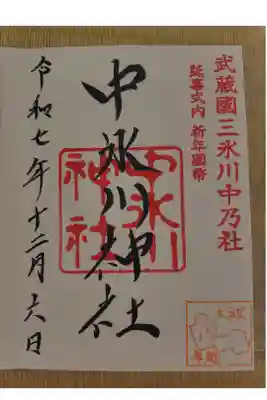 武蔵國三氷川中乃社
延喜式内 祈年國幣
中氷川神社
中氷川
神社
令和七年十二月六日